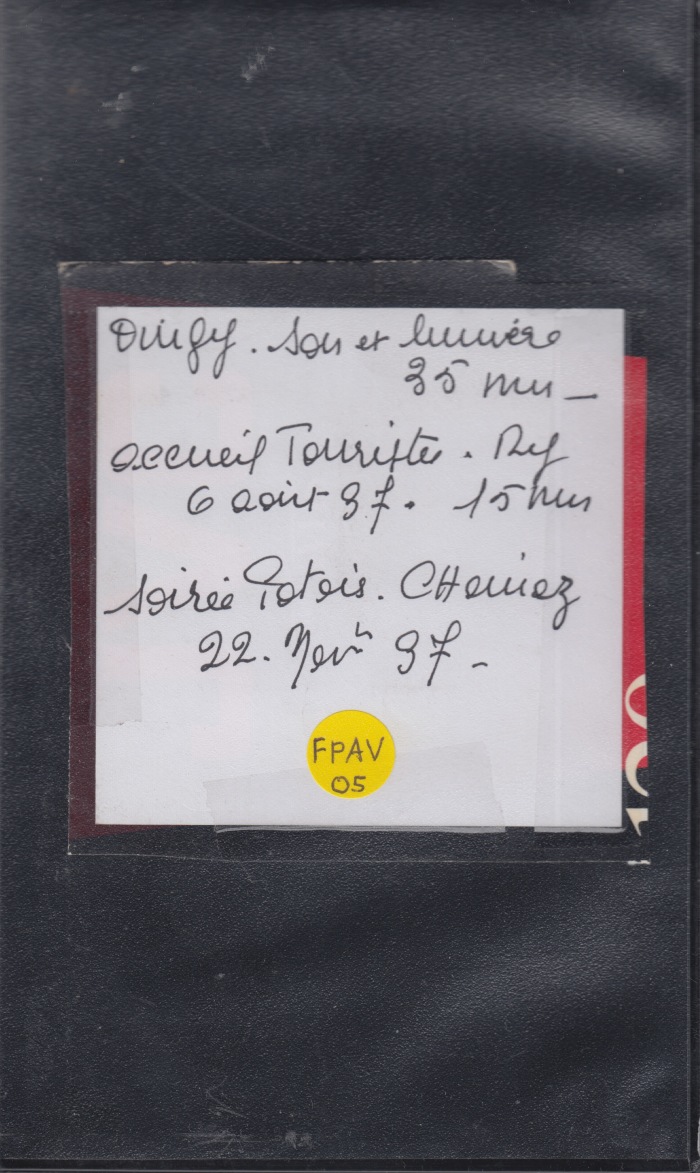 Dingy. Son et lumière
35 mn _
accueil Touristes.
6 août 97. 15 mn
soirée Patois. CHainaz
22. Nov 97 -
FPAV
05